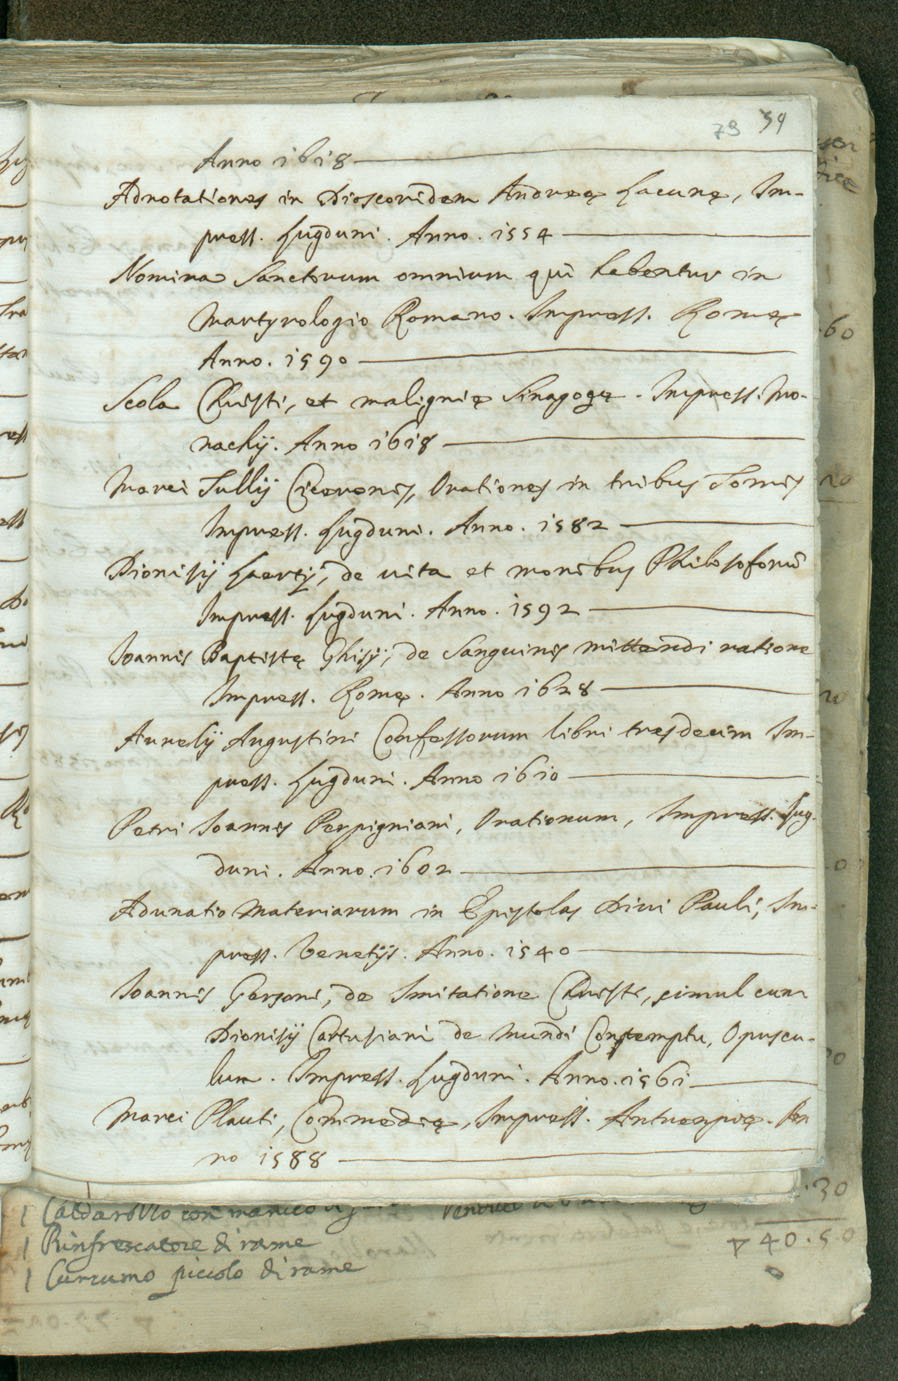 79 39
Anno 1618
Adnotationes in Dioscoridem Andreę Lacunę, Im-
press. Lugduni. Anno. 1554
Nomina Sanctorum omnium qui habentur in
Martyrologio Romano. Impress. Romę
Anno. 1590
Scola Christi, et malignię Sinagogę. Impress. Mo-
nachij. Anno 1618
Marci Tullij Ciceronis, Orationes in tribus Tomis
Impress. Lugduni. Anno. 1582
Dionisij Laertij, de vita et moribus Philosoforũ
Impress. Lugduni. Anno. 1592
Joannis Baptistę Ghisij, de Sanguinis mittendi ratione
Impress. Romę. Anno 1628
Aurelij Augustini Confessorum libri tresdecim Im-
press. Lugduni. Anno 1610
Petri Joannis Perpigniani, Orationum, Impress. Lug-
duni. Anno. 1602
Adunatio Materiarum in Epistolas Divi Pauli, Im-
press. Venetijs. Anno. 1540
Joannis Gersoni, de Imitatione Christi, simul cum
Dionisij Cartusiani de Mundi Contemptu, Opuscu-
lum. Impress. Lugduni. Anno. 1561
Marci Plauti, Commedię, Impress. Antuerpię. An
no 1588
30
1 Caldarollo con manico
1 Rinfrescatore di rame
40.50
1 Curcumo piccolo di rame